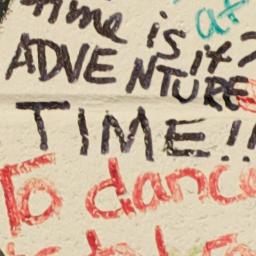 time is it?
at
ADVENTURE
TIME!!
To danc